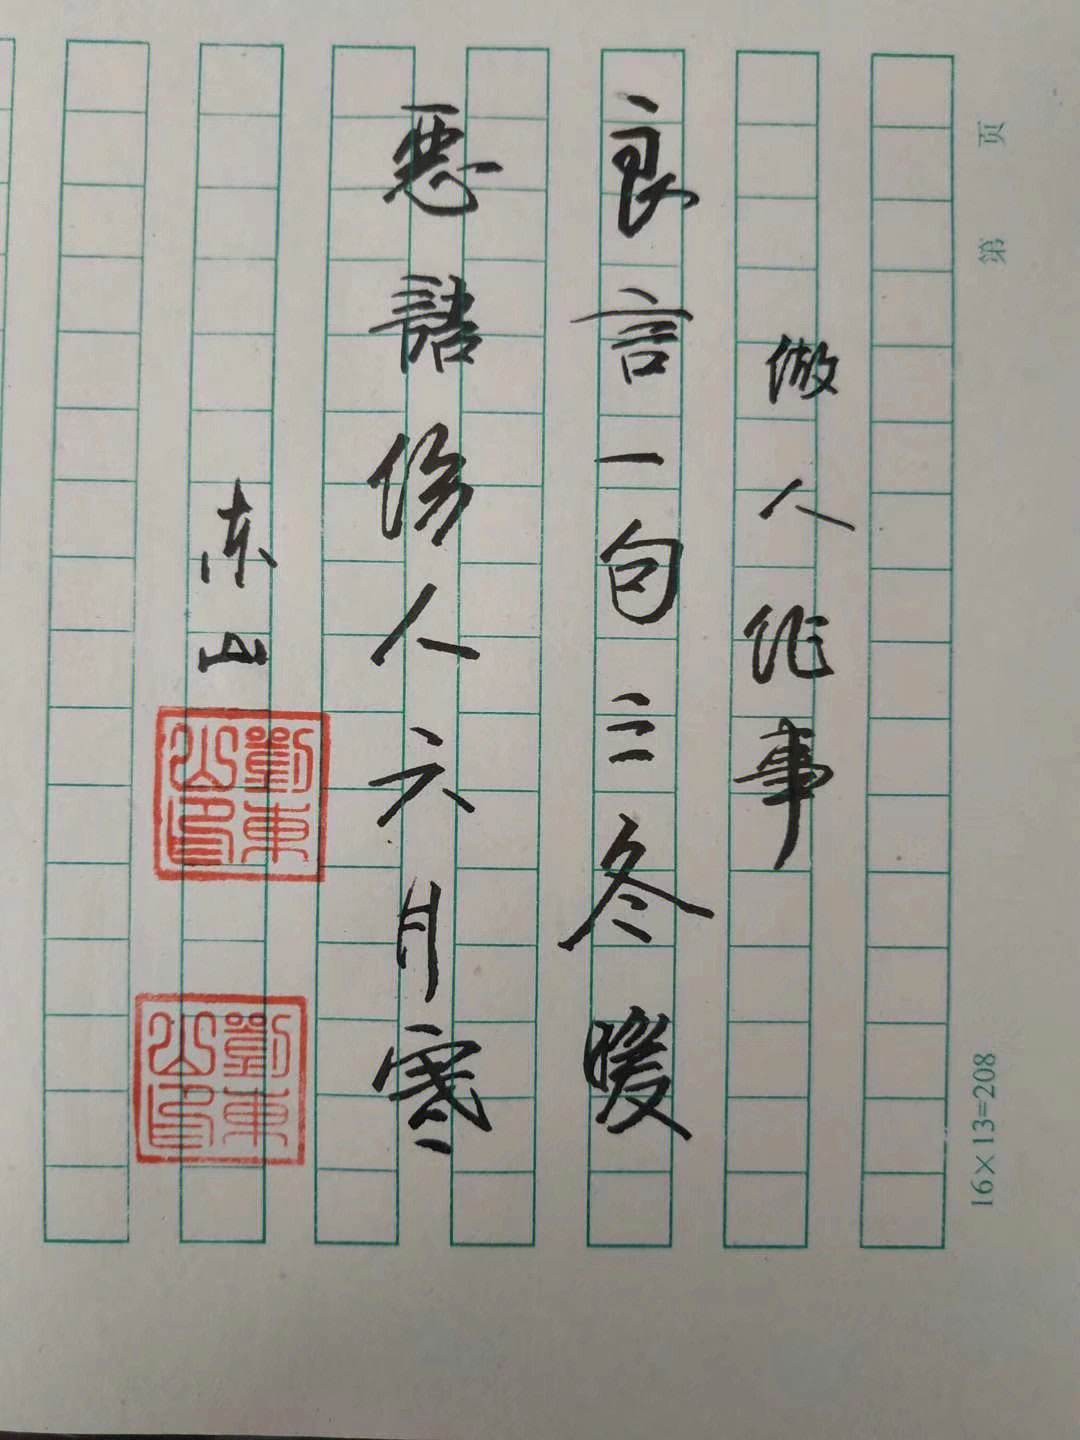 做人作事
良言一句三冬暖
惡語伤人六月寒
东山
劉東山印
劉東山印
第 页
16×13=208